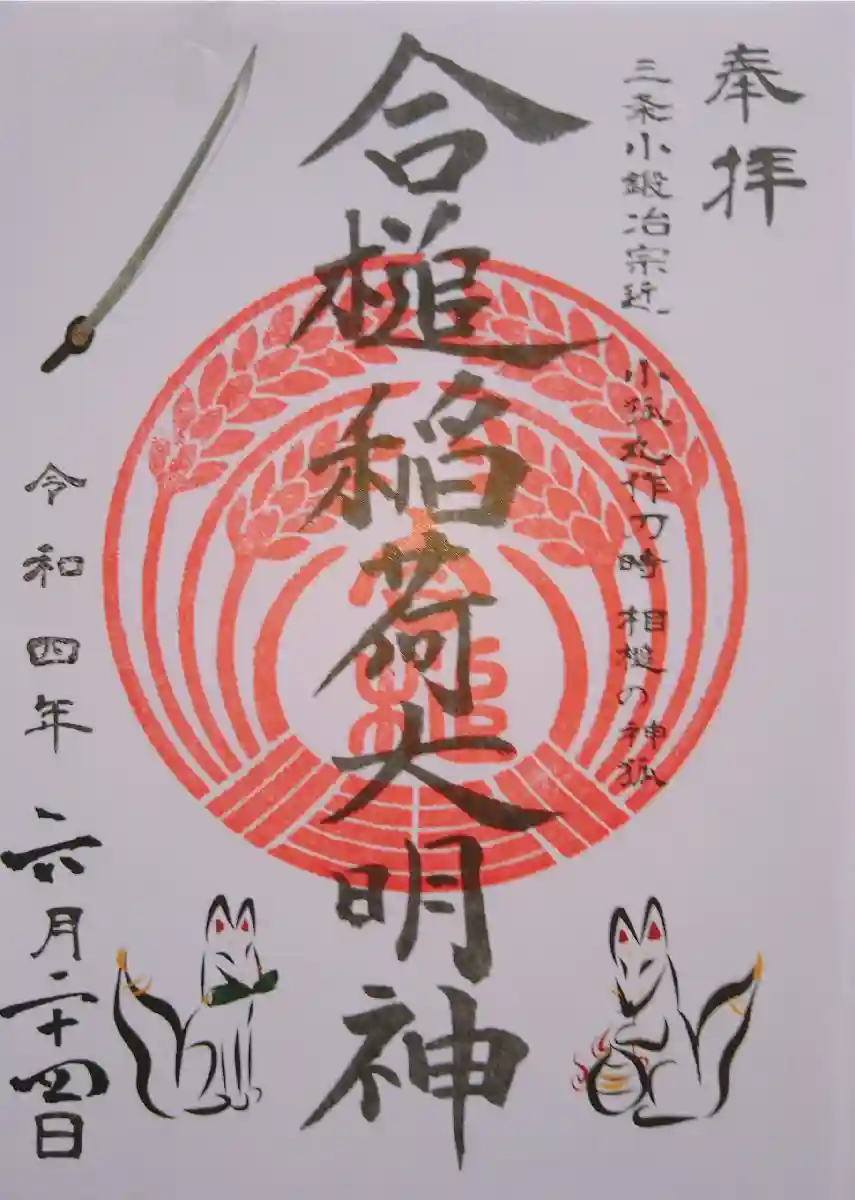 奉拝
三条小鍛冶宗近 小狐丸作刀時 相槌の神狐
合槌稲荷大明神
令和四年六月二十四日